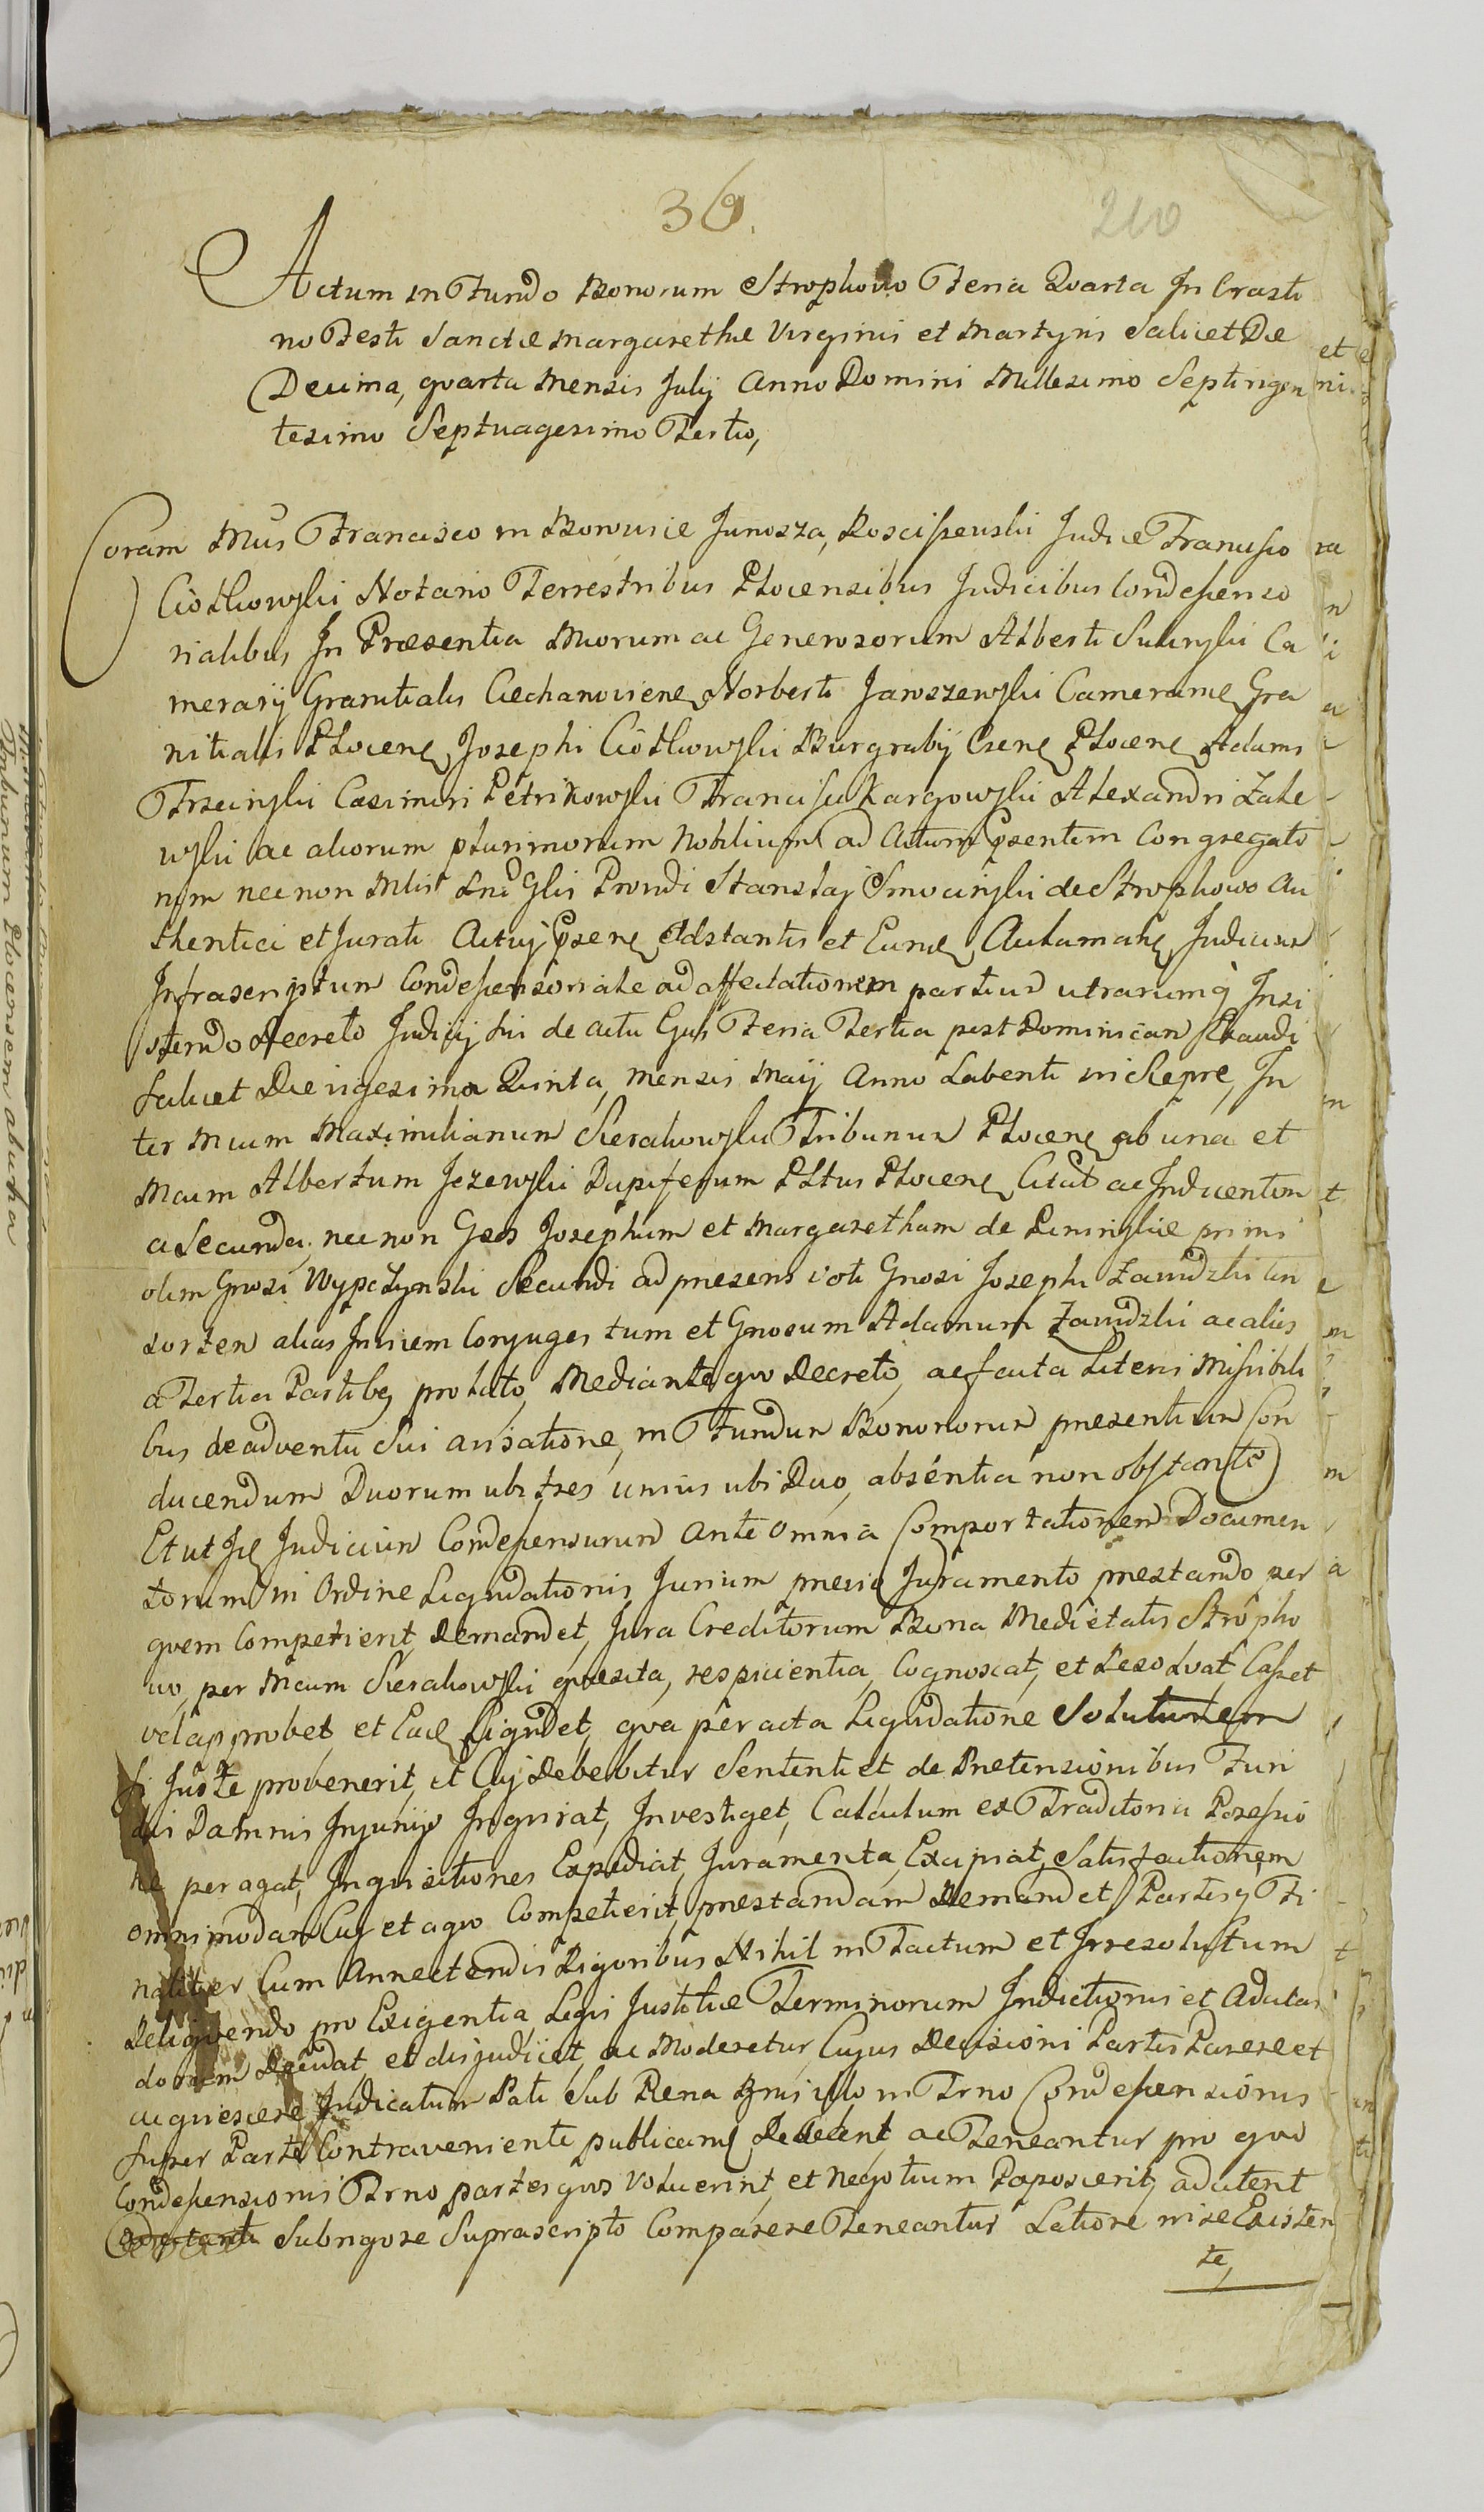 36.
210
Actum in Fundo Bonorum Strophowo Feria Qvarta In Crasti
no Festi Sanctæ Margarethæ Virginis et Martyris Salicet Die
Decima, qvarta Mensis Julij Anno Domini Millesimo Septingen
tesimo Septuagesimo Tertio,
Coram Mcis Francisco in Borowice Junosza, Rosciszewski Judice Francisco
Ciółkowski Notario Terrestribus Plocensibus Judicibus Condescenso
rialibus, In Præsentia Mcorum ac Generosorum Alberti Sulinski Ca
merarij Granitialis Ciechanoviens, Norberti Jaroszewski Camerarii Gra
nitialis Plocens, Josephi Ciółkowski Burgrabij Csens Plocens Adami
Trzcinski Casimiri Petrikowski Francisci Kargowski Alexandri Zale
wski ac aliorum plurimorum Nobilium ad Actum Psentem Congregato
rum nec non Mltis Dni Glis Provdi Stanslaj Smocinski de Strophowo Au
thentici et Jurati Actuj Psens Adstantis et Eund Aclamatis Judicium
Infrascriptum Condescensoriale ad affectationem partium utrarumq Insi
stendo Decreto Judicij sui de actu Ejus Feria Tertia post Dominicam Exaudi
salicet Die vigesima Qvinta, Mensis Maij Anno Labenti in Repre, In
ter Mcum Maximilianum Sierakowski Tribunum Plocens ab una et
Mcum Albertum Jezewski Dapiferum Pltus Plocens Citat ac Inducentem
a Secunda, nec non Gsos Josephum et Margaretham de Pininskie primi
olim Gnosi Wypczynski Secundi ad præsens voti Gnosi Josephi Zawidzki Con
sorten alias Invicem Conjuges tum et Gnosum Adamum Zawidzki ac alios
a Tertia Partibq prolato, Mediante qvo Decreto, ac facta Literis Missibili
bus de adventu Sui avisatione, in Fundum Bononorum præsentium Con
ducendum Duorum ubi tres unius ubi Duo, absentia non obstante
Et ut Jd Judicium Condescensorum ante omnia Comportationem Documen
torum in Ordine Liqvidationis, Jurium previo Juramento præstando per
qvem Competierit demandet, Jura Creditorum Bona Medietatis Stropho
wo, per Mcum Sierakowski qvæsita, respicientia, Cognoscat, et Resolvat, Casset
vel approbet, et Eadem Liqvidet, qva peracta Liqvidatione Solutionem
si Juste provenerit, et Cuj Debebitur Sententiet de Prætensionibus Fun
di Damnis Injurijs Inqvirat, Investiget, Calculum ex Traditoria Possessio
ne peragat, Inqvisitiones Expediat, Juramenta, Excipiat, Satisfactionem
omnimodam Cuj et a qvo Competierit, præstandam Demandet, Partesq Fi
naliter Cum Annectendis Rigoribus Nihil in Factum et Irresolutum
Reliqvendo pro Exigentia Legis Justitiæ Terminorum Inductionis et Adcitan
dorum Decidat, et disjudicet, ac Moderetur, Cujus Decisioni Partes Parere et
acqviescere Judicatum Pati Sub Pena Banitio in Trno Condescensionis
super Parte Contraveniente publicand Debebent, ac Teneantur pro qvo
Condescensionis Trno partes qvos voluerint, et Negotium Poposcerit, adcitent
Sub rigore Suprascripto Comparere Teneantur Latione mise Existen
te,